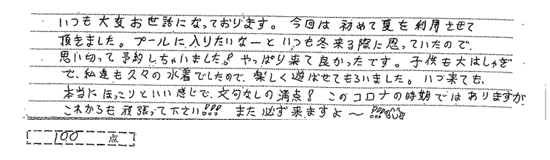 いつも大変お世話になっております。今回は初めて夏を利用させて
頂きました。プールに入りたいなーといつも冬来る際に思っていたので、
思い切って予約しちゃいました!やっぱり来て良かったです。子供も大はしゃぎ
で、私達も久々の水着でしたので、楽しく遊ばせてもらいました。いつ来ても、
本当にほっこりといい感じで、文句なしの満点!このコロナの時期ではありますが
これからも頑張って下さい!!!また必ず来ますよ〜!!!
100 点